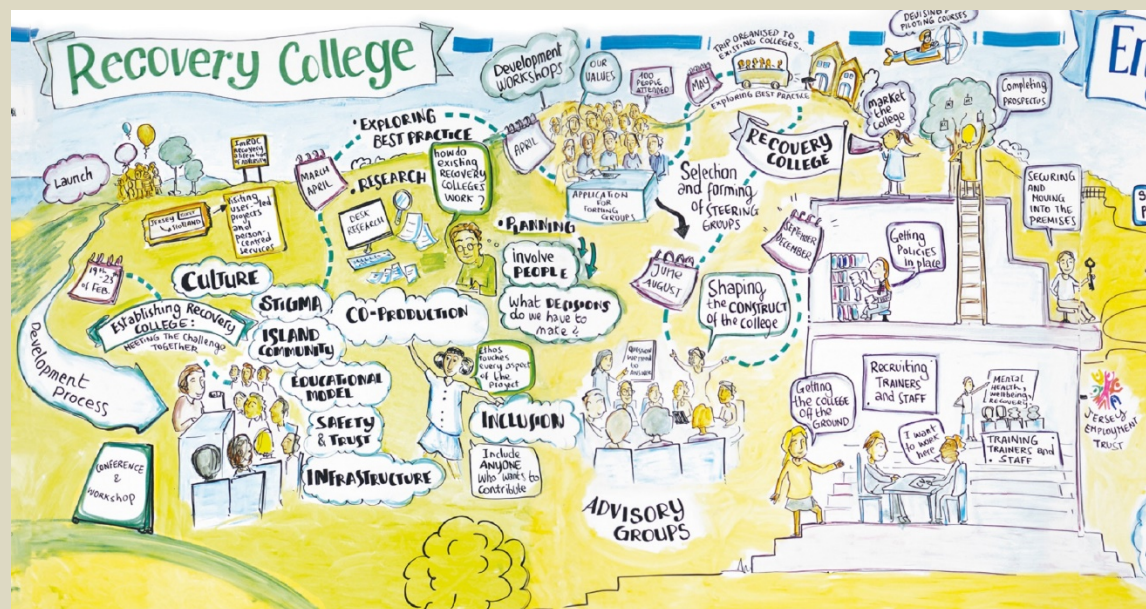 Recovery College
Launch
ImROC
RECOVERY
Visiting
user-led
projects
and
person-
centred
services
Jersey
HOLLAND
19th
-23
of FEB.
Development
Process
CONFERENCE
&
WORKSHOP
Establishing Recovery
COLLEGE:
MEETING THE CHALLENGE
TOGETHER
CULTURE
STIGMA
ISLAND
COMMUNITY
EDUCATIONAL
MODEL
SAFETY
& TRUST
INFRASTRUCTURE
CO-PRODUCTION
MARCH
APRIL
• EXPLORING
BEST PRACTICE
• RESEARCH
DESK
RESEARCH
how do
existing
RECOVERY
COLLEGES
WORK?
• PLANNING
involve
PEOPLE
What DECISIONS
do we have to
make?
Ethos
touches
every aspect
of the
Project
INCLUSION
Include
ANYONE
who wants to
contribute
Development
WORKSHOPS
OUR
VALUES
100
PEOPLE
ATTENDED
APRIL
APPLICATION
FOR
FORMING
GROUPS
MAY
TRIP ORGANISED TO
EXISTING COLLEGES...
EXPLORING BEST PRACTICE
Selection
and forming
of STEERING
GROUPS
JUNE
AUGUST
Shaping
the CONSTRUCT
of the college
QUESTIONS
WE NEED
TO
ANSWER
ADVISORY
GROUPS
RECOVERY
COLLEGE
SEPTEMBER
DECEMBER
DEVISING &
PILOTING COURSES
market
the
college
Completing
PROSPECTUS
SECURING
AND
MOVING
INTO THE
PREMISES
Getting
Policies
in place
Getting
the college
off the
GROUND
Recruiting
TRAINERS
and STAFF
I want
to work
here
Mental
HEALTH,
wellbeing
RECOVERY
TRAINING
TRAINERS and
STAFF
JERSEY
EMPLOYMENT
TRUST